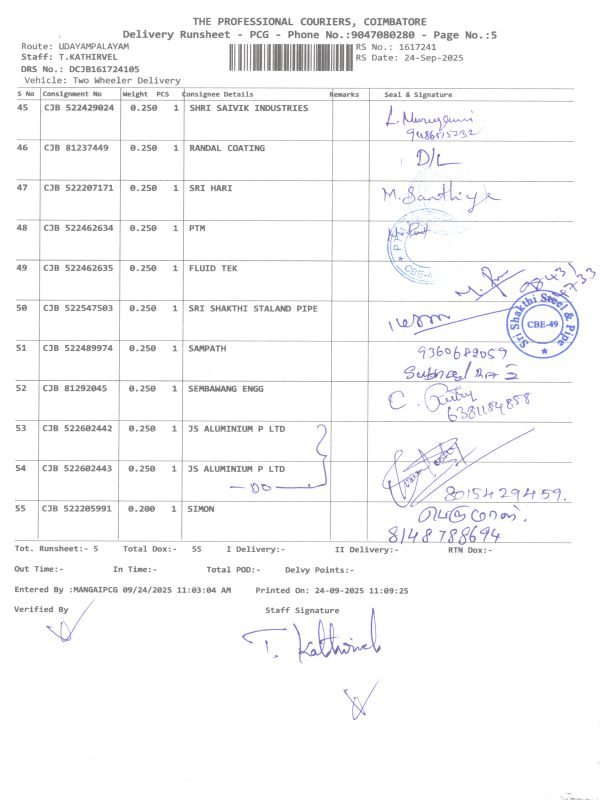 THE PROFESSIONAL COURIERS, COIMBATORE
Delivery Runsheet - PCG - Phone No.:9047080280 - Page No.:5
Route: UDAYAMPALAYAM RS No.: 1617241
Staff: T.KATHIRVEL RS Date: 24-Sep-2025
DRS No.: DCJB161724105
Vehicle: Two Wheeler Delivery
S No Consignment No Weight PCS Consignee Details Remarks Seal & Signature
45 CJB 522429024 0.250 1 SHRI SAIVIK INDUSTRIES
46 CJB 81237449 0.250 1 RANDAL COATING D/L
47 CJB 522207171 0.250 1 SRI HARI M. Santhiya
48 CJB 522462634 0.250 1 PTM
CBE-4
49 CJB 522462635 0.250 1 FLUID TEK
50 CJB 522547503 0.250 1 SRI SHAKTHI STALAND PIPE
Sri Shakthi Steel & Pipe
CBE-49
51 CJB 522489974 0.250 1 SAMPATH 9360682059
52 CJB 81292045 0.250 1 SEMBAWANG ENGG
6381184858
53 CJB 522602442 0.250 1 JS ALUMINIUM P LTD
54 CJB 522602443 0.250 1 JS ALUMINIUM P LTD
—DO— 8015429459.
55 CJB 522205991 0.200 1 SIMON
8148788694
Tot. Runsheet:- 5 Total Dox:- 55 I Delivery:- II Delivery:- RTN Dox:-
Out Time:- In Time:- Total POD:- Delvy Points:-
Entered By :MANGAIPCG 09/24/2025 11:03:04 AM Printed On: 24-09-2025 11:09:25
Verified By Staff Signature
T. Kathirvel